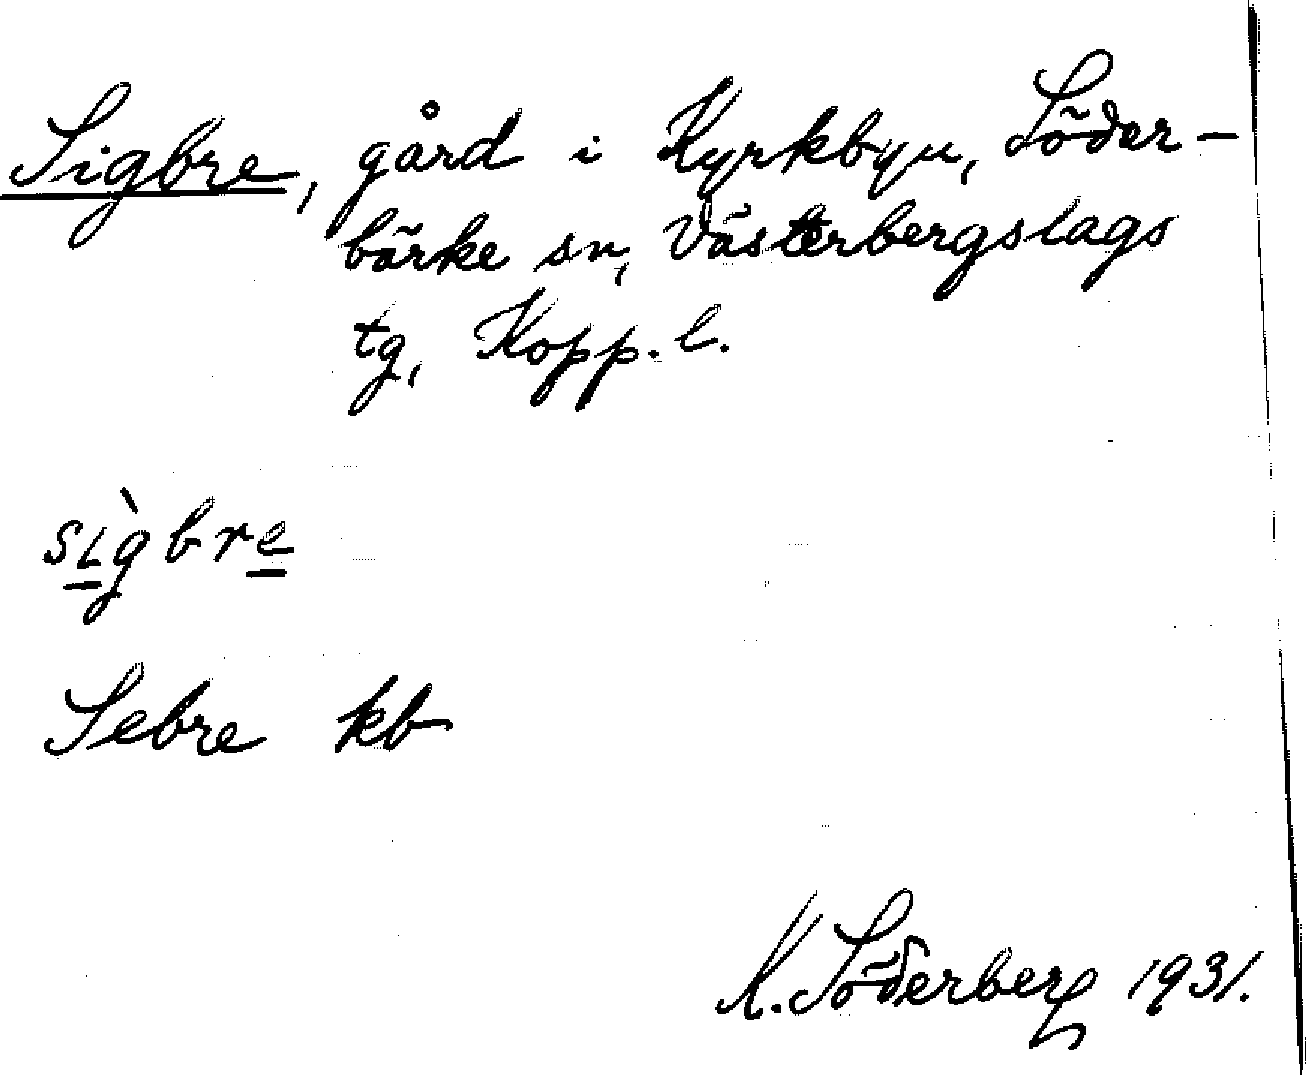 Sigbre, gård i Kyrkbyn, Söder-
bärke sn, Västerbergslags
tg, Kopp. l.
sìgbre
Sebre kb
K. Söderberg 1931.